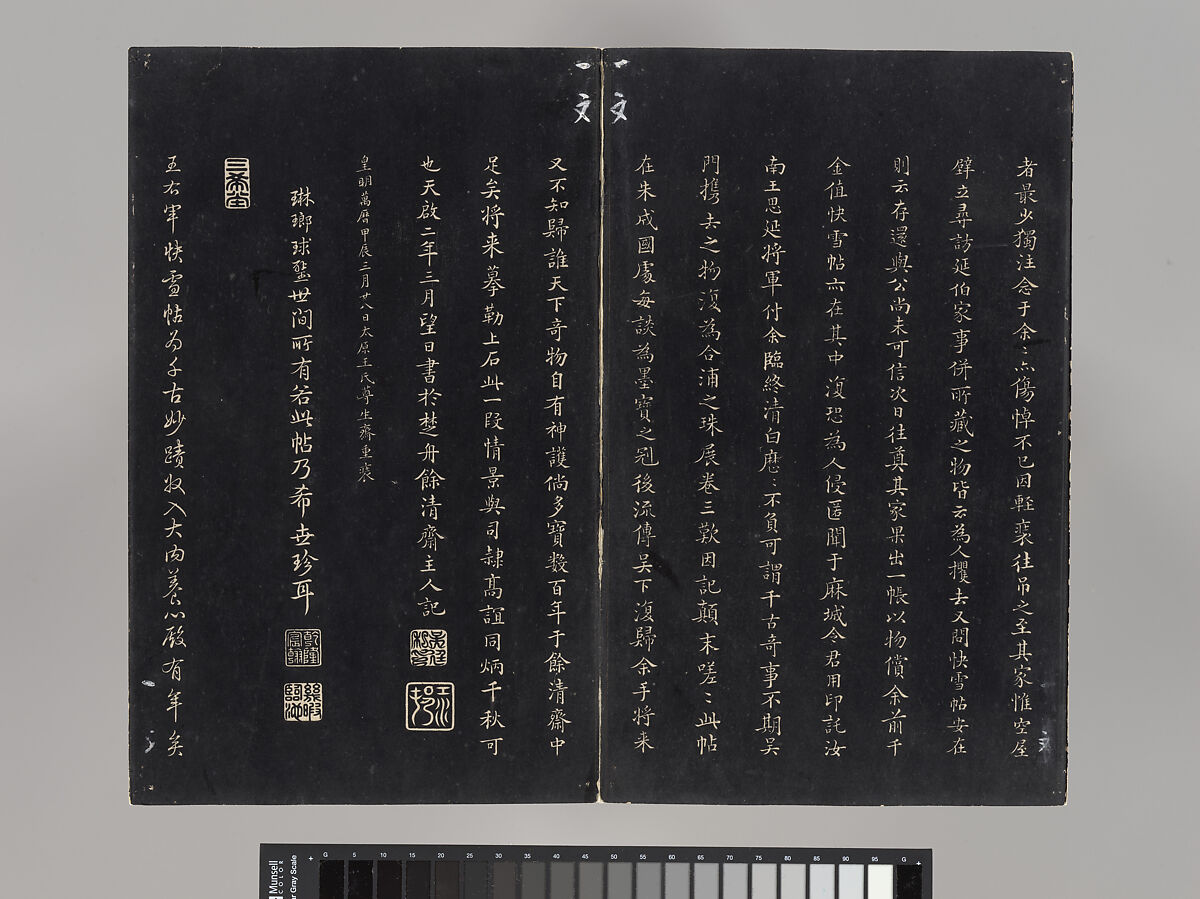 者最少獨注念于余〻亦傷悼不已因輕裘往吊之至其家惟空屋
壁立尋訪延伯家事併所藏之物皆云為人攫去又問快雪帖安在
則云存還與公尚未可信次日往奠其家果出一帳以物償余前千
金值快雪帖亦在其中復恐為人侵匿聞于麻城令君用印託汝
南王思延將軍付余臨終清白麽〻不負可謂千古奇事不期吳
門攜去之物復為合浦之珠展卷三歎因記顛末嗟〻此帖
在朱成國處每談為墨寶之冠後流傳吳下復歸余手將來
又不知歸誰天下奇物自有神護倘多寶數百年于餘清齋中
足矣將來摹勒上石此一段情景與司隸高誼同炳千秋可
也天啟二年三月望日書於楚舟餘清齋主人記
皇明萬曆甲辰三月廿八日太原王氏尊生齋重裘
琳瑯球璧世間所有若此帖乃希世珍耳
乾隆宸翰
幾暇臨池
三希堂
王右軍快雪帖為千古妙蹟收入大內養心殿有年矣
文
文
G 5 10 15 20 25 30 35 40 45 50 55 60 65 70 75 80 85 90 95 G
Munsell
COLOR
Gray Scale